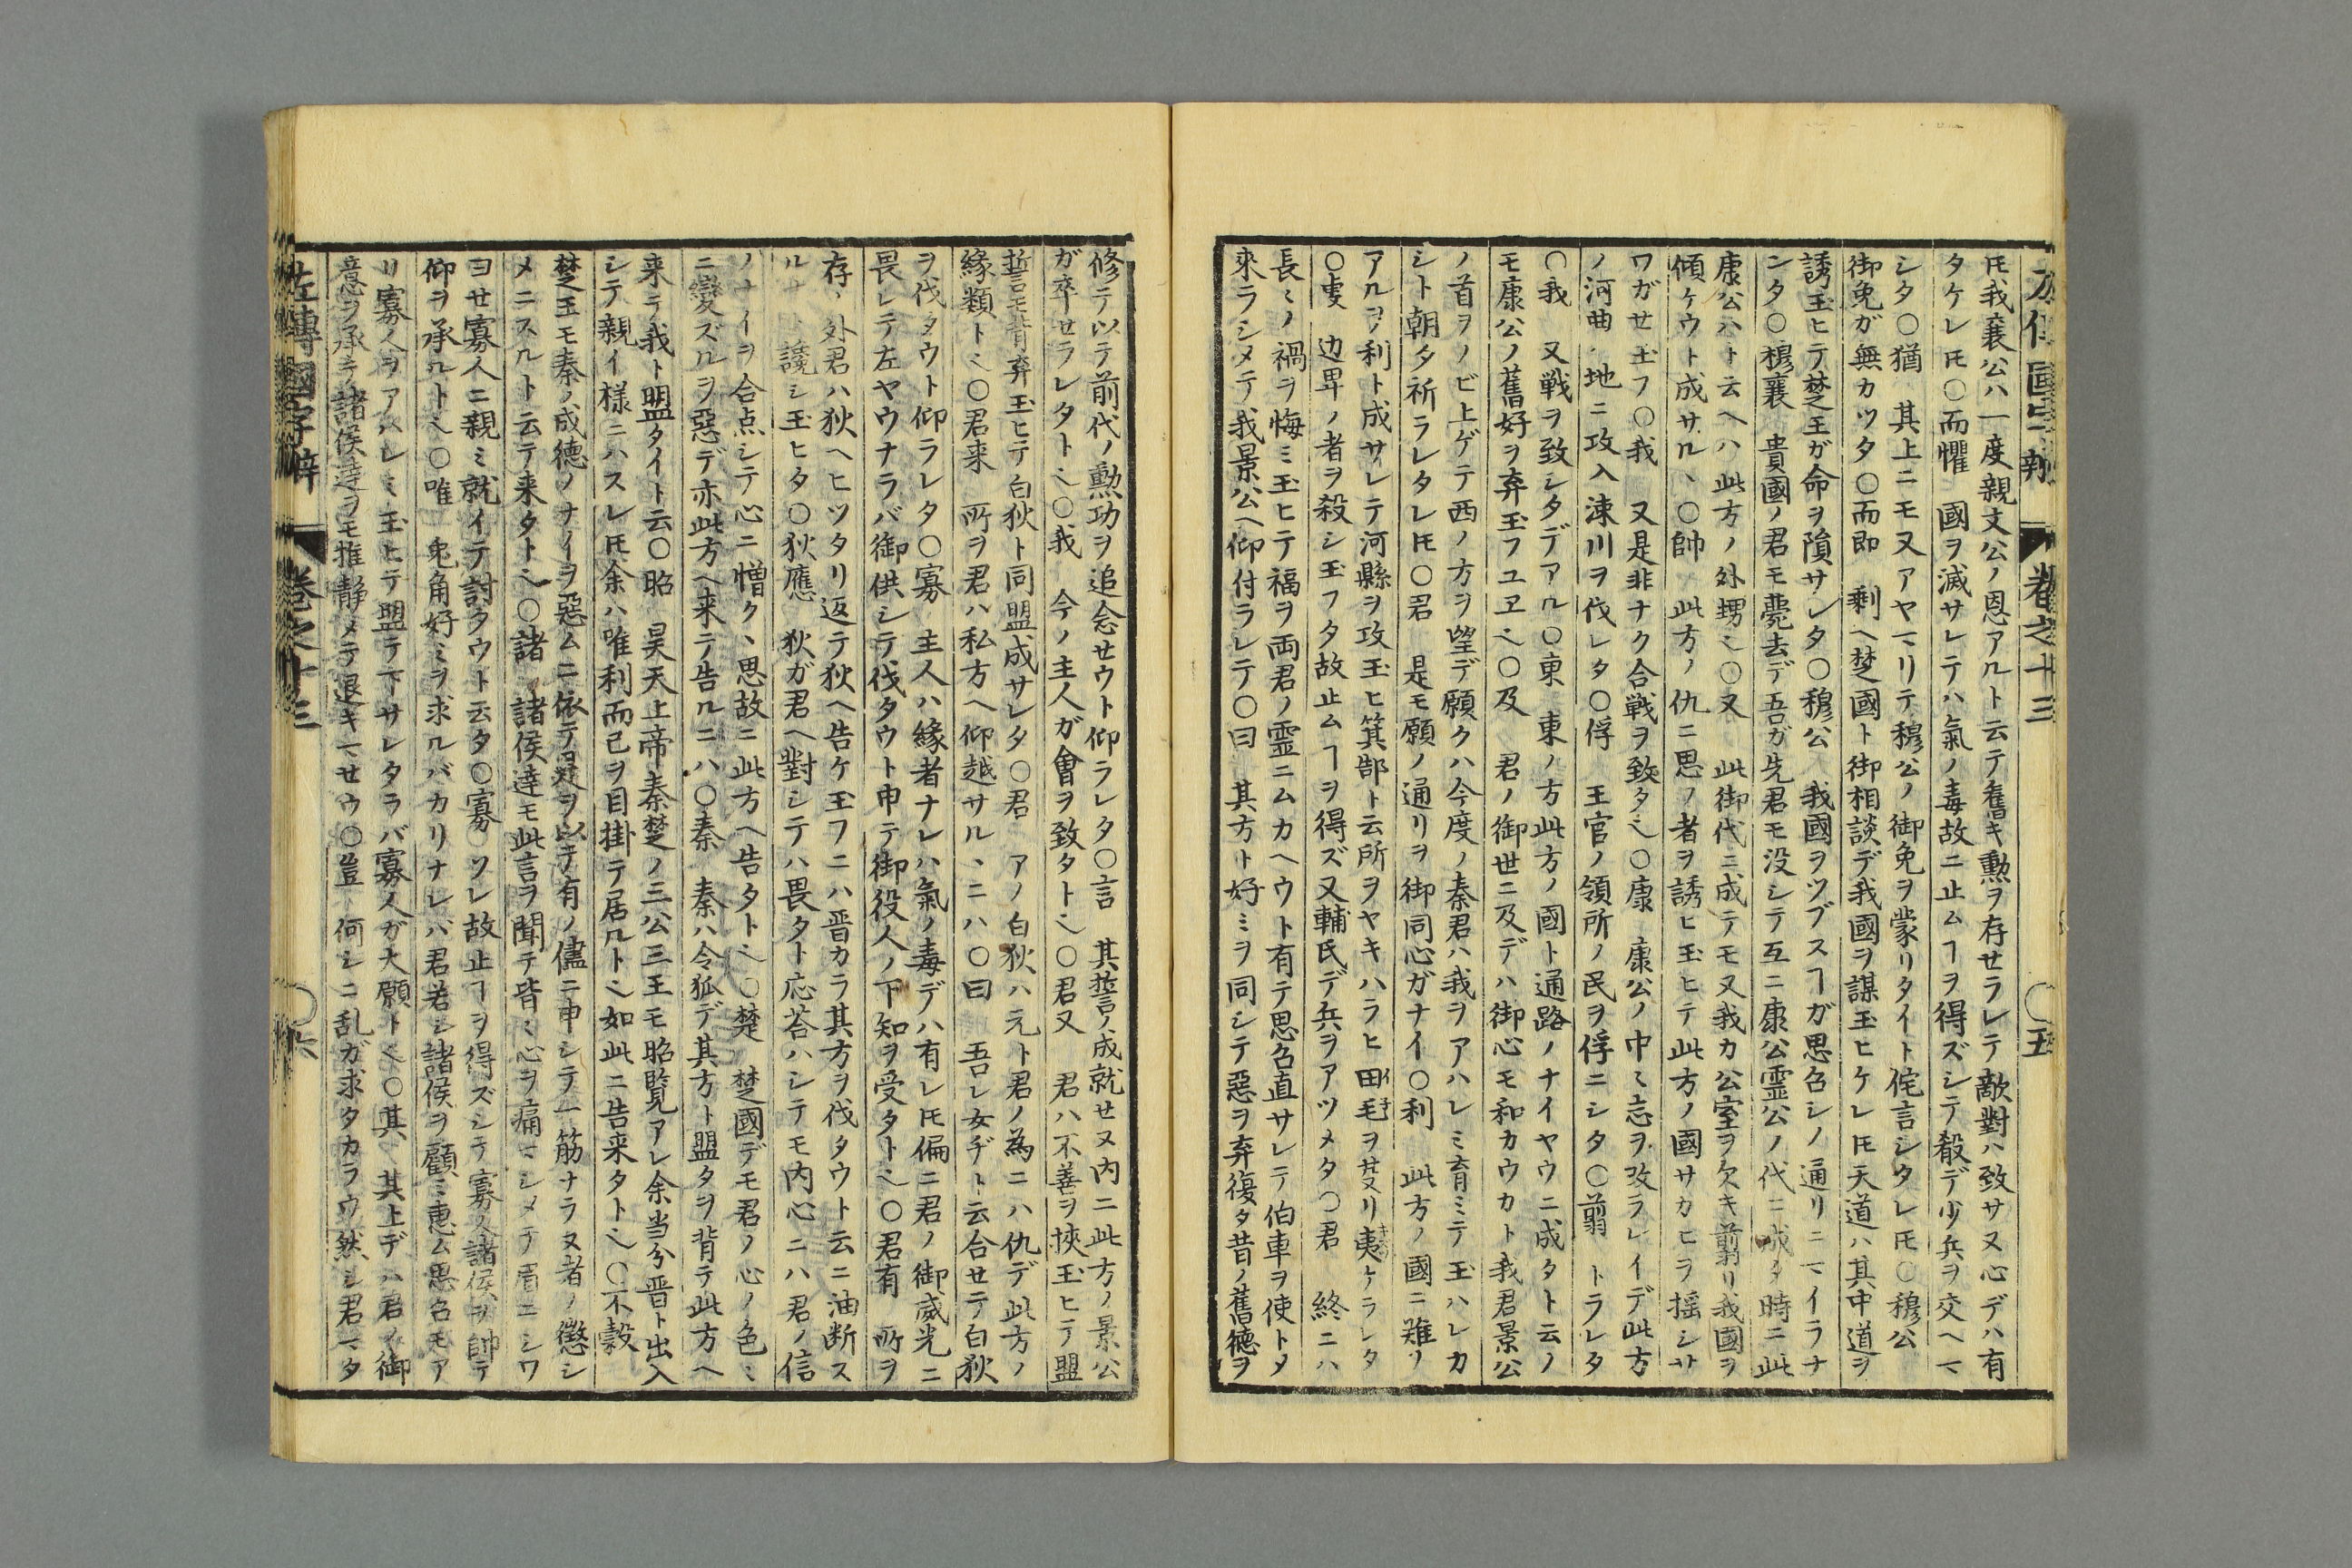 左傳國字辯 巻之十三 〇五
𪜈我襄公ハ一度親文公ノ恩アルト云テ舊キ勲ヲ存セラレテ敵對ハ致サヌ心デハ有
タケレ𪜈〇而懼 國ヲ滅サレテハ氣ノ毒故ニ止ムヿヲ得ズシテ殽デ少兵ヲ交ヘマ
シタ〇猶 其上ニモ又アヤマリテ穆公ノ御免ヲ蒙リタイト侘言シタレ𪜈〇穆公
御免ガ無カツタ〇而即 剰ヘ楚國ト御相談デ我國ヲ謀玉ヒケレ𪜈天道ハ其中道ヲ
誘玉ヒテ楚王ガ命ヲ隕サレタ〇穆公 我國ヲツブスヿガ思召シノ通リニマイラナ
ンタ〇穆襄 貴國ノ君モ薨去デ吾ガ先君モ没シテ互ニ康公霊公ノ代ニ成タ時ニ此
康公ハト云ヘハ此方ノ外甥〻〇又 此御代ニ成テモ又我カ公室ヲ欠キ翦リ我國ヲ
傾ケウト成サル、〇帥 此方ノ仇ニ思ノ者ヲ誘ヒ玉ヒテ此方ノ國サカヒヲ揺シサ
ワガせ玉フ〇我 又是非ナク合戦ヲ致タ〻〇康 康公ノ中〻忘ヲ改ラレイデ此方
ノ河曲ノ地ニ攻入涑川ヲ伐レタ〇俘 王官ノ領所ノ民ヲ俘ニシタ〇翦 トラレタ
〇我 又戦ヲ致シタデアル〇東 東ノ方此方ノ國ト通路ノナイヤウニ成タト云ノ
モ康公ノ舊好ヲ弃玉フユヱ〻〇及 君ノ御世ニ及デハ御心モ和カウカト我君景公
ノ首ヲノビ上ゲテ西ノ方ヲ望デ願クハ今度ノ秦君ハ我ヲアハレミ育ミテ玉ハレカ
シト朝夕祈ラレタレ𪜈〇君 是モ願ノ通リヲ御同心ガナイ〇利 此方ノ國ニ難ノ
アルヲ利ト成サレテ河縣ヲ攻玉ヒ箕郜ト云所ヲヤキハラヒ田毛ヲ芟リ夷ケラレタ
〇虔 边畀ノ者ヲ殺シ玉フタ故止ムヿヲ得ズ又輔氏デ兵ヲアツメタ〇君 終ニハ
長〻ノ禍ヲ悔ミ玉ヒテ福ヲ両君ノ霊ニムカヘウト有テ思召直サレテ伯車ヲ使トメ
來ラシメテ我景公ヘ仰付ラレテ〇曰 其方ト好ミヲ同シテ惡ヲ弃復タ昔ノ舊德ヲ
修テ以テ前代ノ勲功ヲ追念せウト仰ラレタ〇言 其誓ノ成就せヌ内ニ此方ノ景公
ガ卒せラレタト〻〇我 今ノ主人ガ會ヲ致タト〻〇君又 君ハ不善ヲ挾玉ヒテ盟
誓モ背弃玉ヒテ白狄ト同盟成サレタ〇君 アノ白狄ハ元ト君ノ為ニハ仇デ此方ノ
緣類ト〻〇君来 所ヲ君ハ私方ヘ仰越サル、ニハ〇曰 吾レ女ヂト云合せテ白狄
ヲ伐タウト仰ラレタ〇寡 主人ハ緣者ナレハ氣ノ毒デハ有レ𪜈偏ニ君ノ御威光ニ
畏レテ左ヤウナラバ御供シテ伐タウト申テ御役人ノ下知ヲ受タト〻〇君有 所ヲ
存、外君ハ狄ヘヒツタリ返テ狄ヘ告ケ玉フニハ晋カラ其方ヲ伐タウト云ニ油断ス
ルナ 讒シ玉ヒタ〇狄應 狄ガ君ヘ對シテハ畏タト応荅ハシテモ内心ニハ君ノ信
ノナイヲ合点シテ心ニ憎ク、思故ニ此方ヘ告タト〻〇楚 楚國デモ君ノ心ノ色〻
ニ變ズルヲ惡デ亦此方ヘ来テ告ルニハ〇秦 秦ハ令狐デ其方ト盟タヲ背テ此方ヘ
来テ我ト盟タイト云〇昭 昊天上帝秦楚ノ三公三王モ昭覧アレ余当分晋ト出入
シテ親イ様ニハスレ𪜈余ハ唯利而已ヲ目掛テ居ルト〻如此ニ告来タト〻〇不穀
楚王モ秦ノ成德ノナイヲ惡ムニ依テ是ヲ以テ有ノ儘ニ申シテ一筋ナラヌ者ノ懲シ
メニスルト云テ来タト〻〇諸 諸侯達モ此言ヲ聞テ皆〻心ヲ痛マシメテ眉ニシワ
ヨせ寡人ニ親ミ就イテ討タウト云タ〇寡 ソレ故止ヿヲ得ズシテ寡人諸侯ヲ帥テ
仰ヲ承ルト〻〇唯 兔角好ミヲ求ルバカリナレバ君若シ諸侯ヲ顧ミ恵ム思召モア
リ寡人ヲアハレミ玉ヒテ盟テ下サレタラバ寡人ガ大願ト〻〇其 其上デハ君ノ御
意ヲ承テ諸侯達ヲモ推静メテ退キマせウ〇豈 何シニ乱ガ求タカラウ然シ君マタ
左傳國字辯 巻之十三 〇六